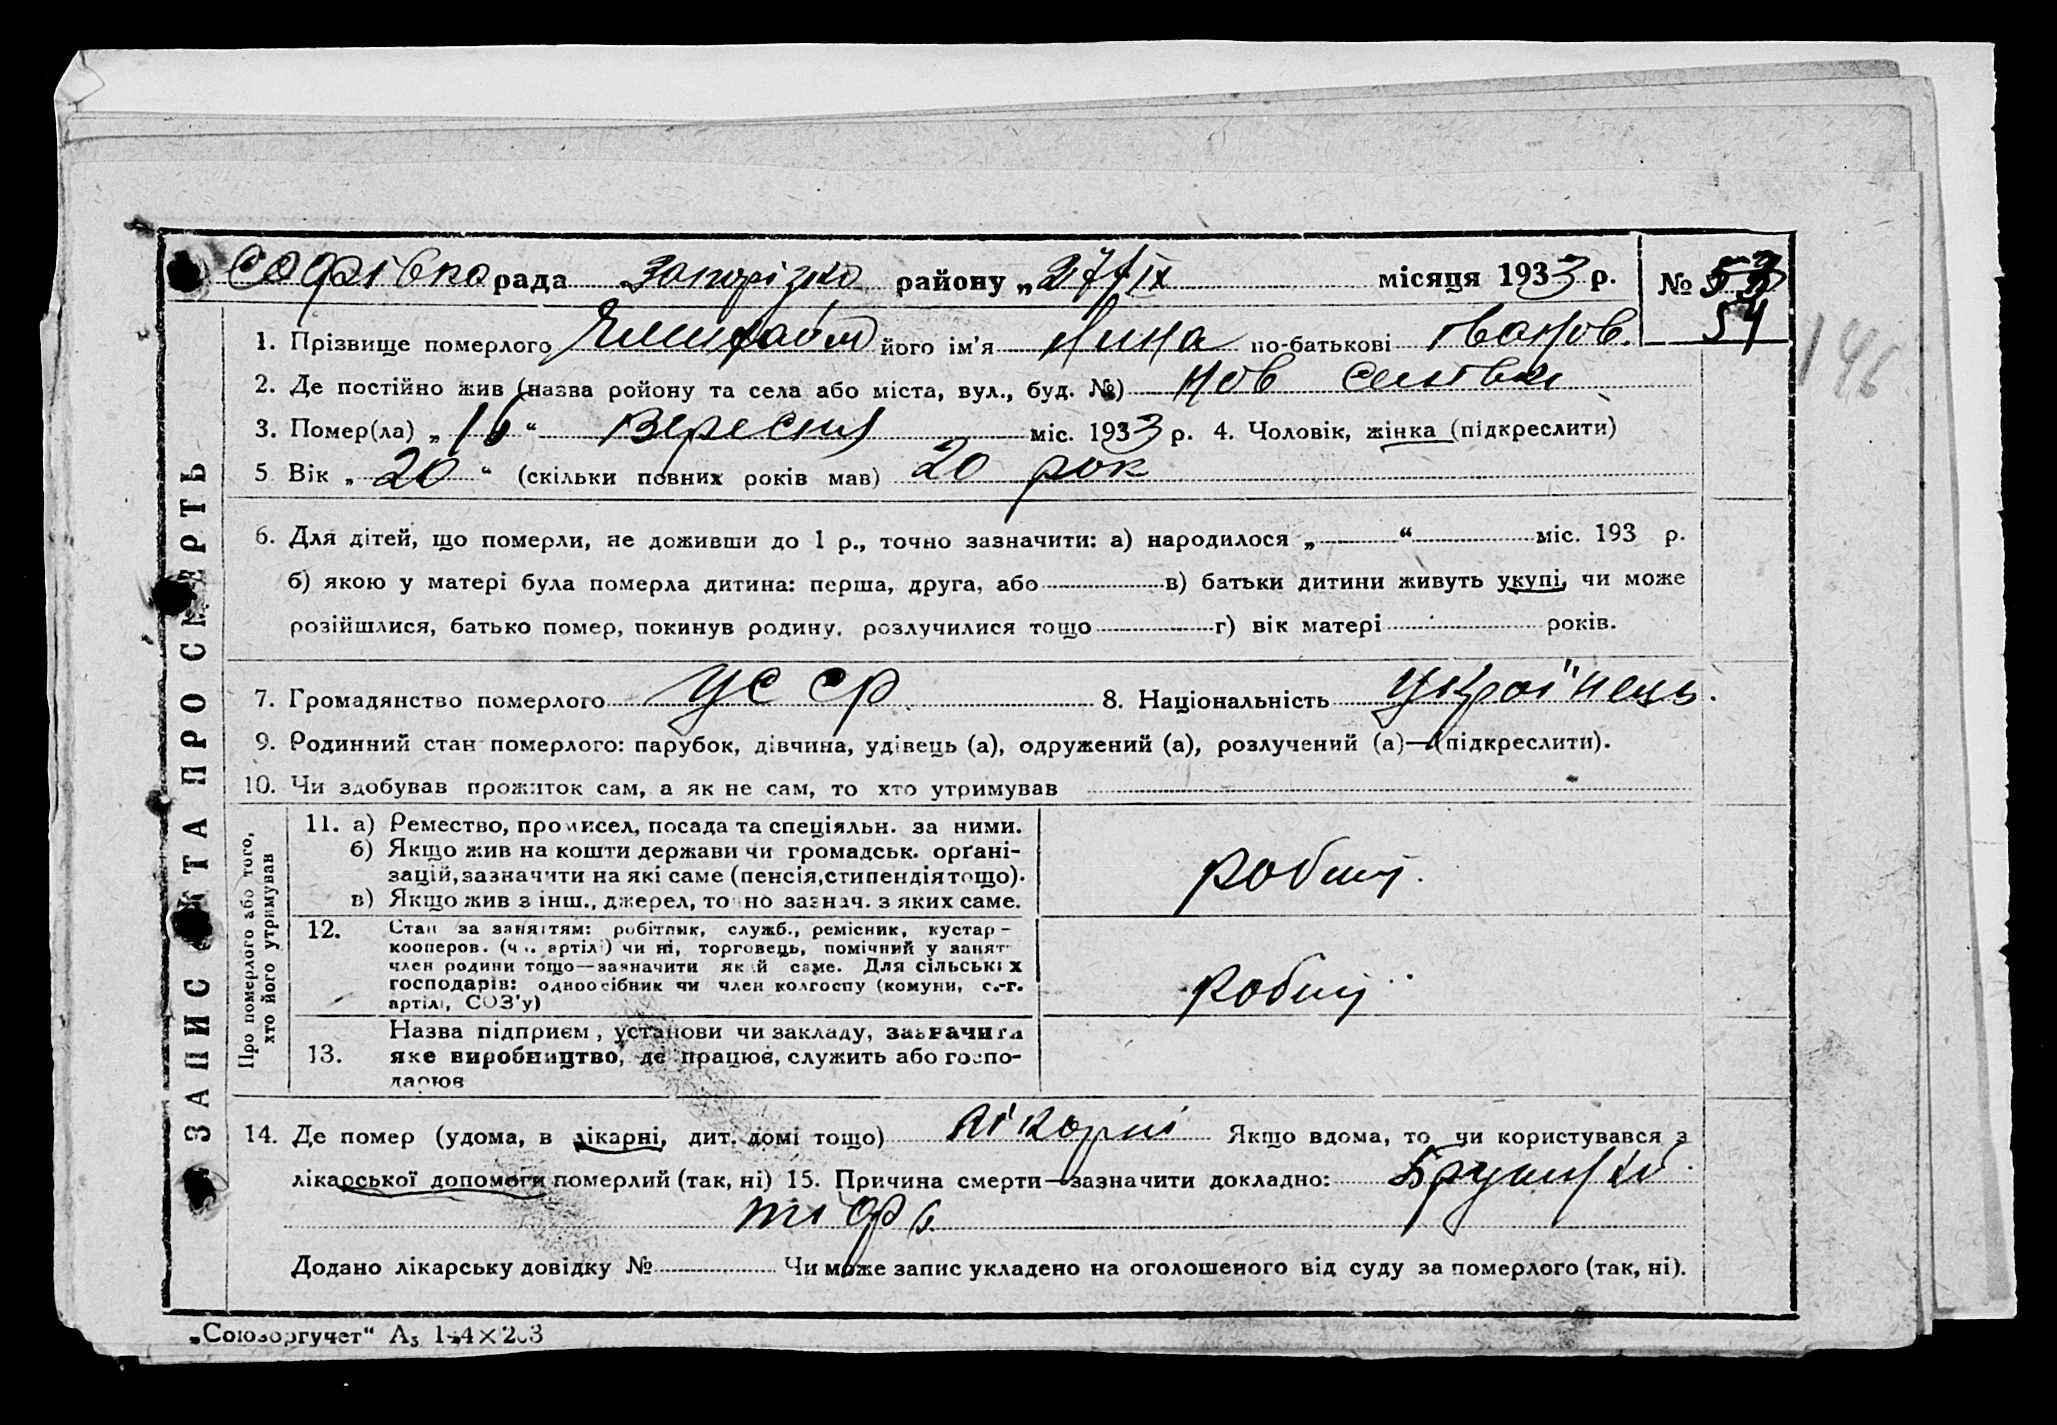 Софівка рада Запорізька району „27/IX місяця 1933 р. № 53
54
146
1. Прізвище померлого його ім'я Лина по-батькові Іванов.
2. Де постійно жив (назва ройону та села або міста, вул., буд. №) Нов
3. Помер(ла) „ 16 “ Вересня міс. 1933 р. 4. Чоловік, жінка (підкреслити)
5 Вік „ 20 “ (скільки повних років мав) 20 рок
6. Для дітей, що померли, не доживши до 1 р., точно зазначити: а) народилося „ “ міс. 193 р.
б) якою у матері була померла дитина: перша, друга, або в) батьки дитини живуть укупі, чи може
розійшлися, батько помер, покинув родину, розлучилися тощо г) вік матері років.
7. Громадянство померлого УССР 8. Національність Украïнець.
9. Родинний стан померлого: парубок, дівчина, удівець (а), одружений (а), розлучений (а)—(підкреслити).
10. Чи здобував прожиток сам, а як не сам, то хто утримував
ЗАПИС АКТА ПРО СМЕРТЬ
Про померлого або того, хто його утримував
11. а) Ремество, промисел, посада та спеціяльн. за ними.
б) Якщо жив на кошти держави чи громадськ. орґані-
зацій, зазначити на які саме (пенсія, стипендія тощо).
в) Якщо жив з інш., джерел, точно зазнач. з яких саме.
робітн.
12. Стан за заняттям: робітник, служб., ремісник, кустар-
кооперов. (чл. артілі) чи ні, торговець, помічний у занят
член родини тощо—зазначити який саме. Для сільських
господарів: одноосібник чи член колгоспу (комуни, с.-г.
артілі, СОЗ'у)
робітн
13. Назва підприєм, установи чи закладу, зазначити
яке виробництво, де працює, служить або госпо-
дарює
14. Де помер (удома, в лікарні, дит. домі тощо) лікарні Якщо вдома, то чи користувався з
лікарської допомоги померлий (так, ні) 15. Причина смерти—зазначити докладно: Брушний
тіф
Додано лікарську довідку № Чи може запис укладено на оголошеного від суду за померлого (так, ні).
„Союзоргучет“ А₅ 144×203